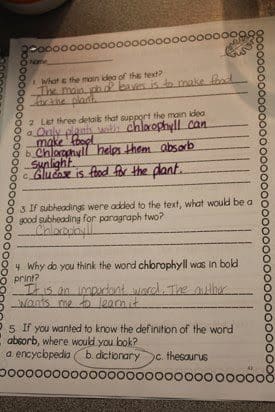 Name
1. What is the main idea of this text?
The main job of leaves is to make food
for the plant.
2. List three details that support the main idea
a. Only plants with chlorophyll can
make food.
b. Chlorophyll helps them absorb
sunlight.
c. Glucose is food for the plant.
3. If subheadings were added to the text, what would be a
good subheading for paragraph two?
Chlorophyll
4. Why do you think the word chlorophyll was in bold
print?
It is an important word. The author
wants me to learn it
5. If you wanted to know the definition of the word
absorb, where would you look?
a. encyclopedia b. dictionary c. thesaurus